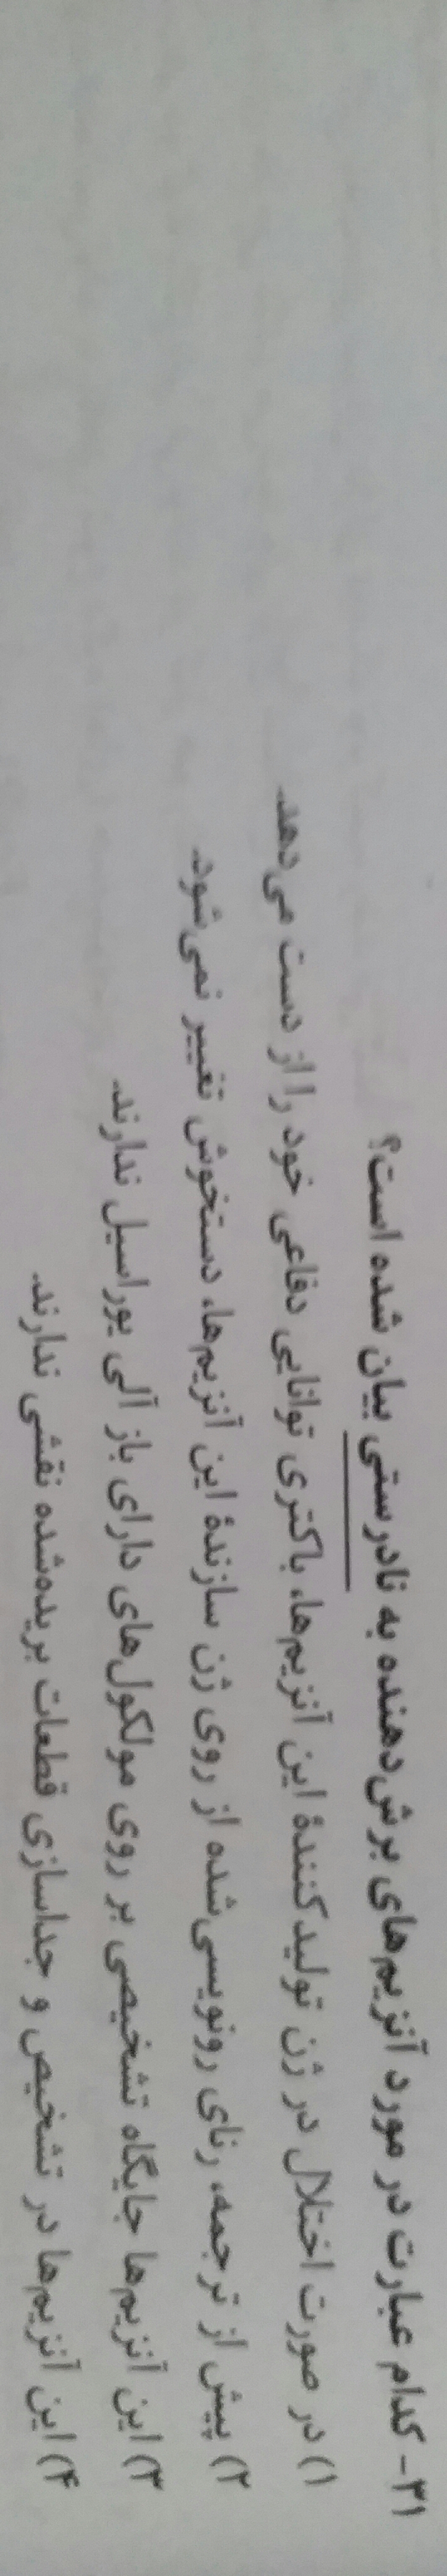 ۳۱- کدام عبارت در مورد آنزیم‌های برش‌دهنده به نادرستی بیان شده است؟
۱) در صورت اختلال در ژن تولیدکنندهٔ این آنزیم‌ها، باکتری توانایی دفاعی خود را از دست می‌دهد.
۲) پیش از ترجمه، رنای رونویسی‌شده از روی ژن سازندهٔ این آنزیم‌ها، دستخوش تغییر نمی‌شود.
۳) این آنزیم‌ها جایگاه تشخیصی بر روی مولکول‌های دارای باز آلی یوراسیل ندارند.
۴) این آنزیم‌ها در تشخیص و جداسازی قطعات بریده‌شده نقشی ندارند.